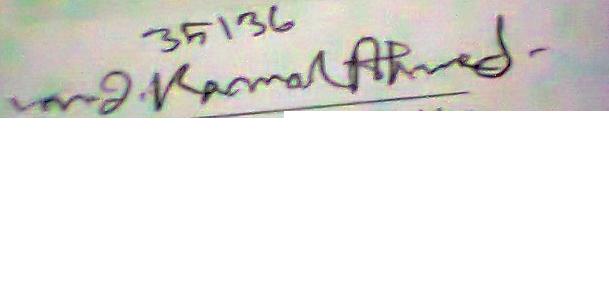 35136
Md. Kamal Ahmed.